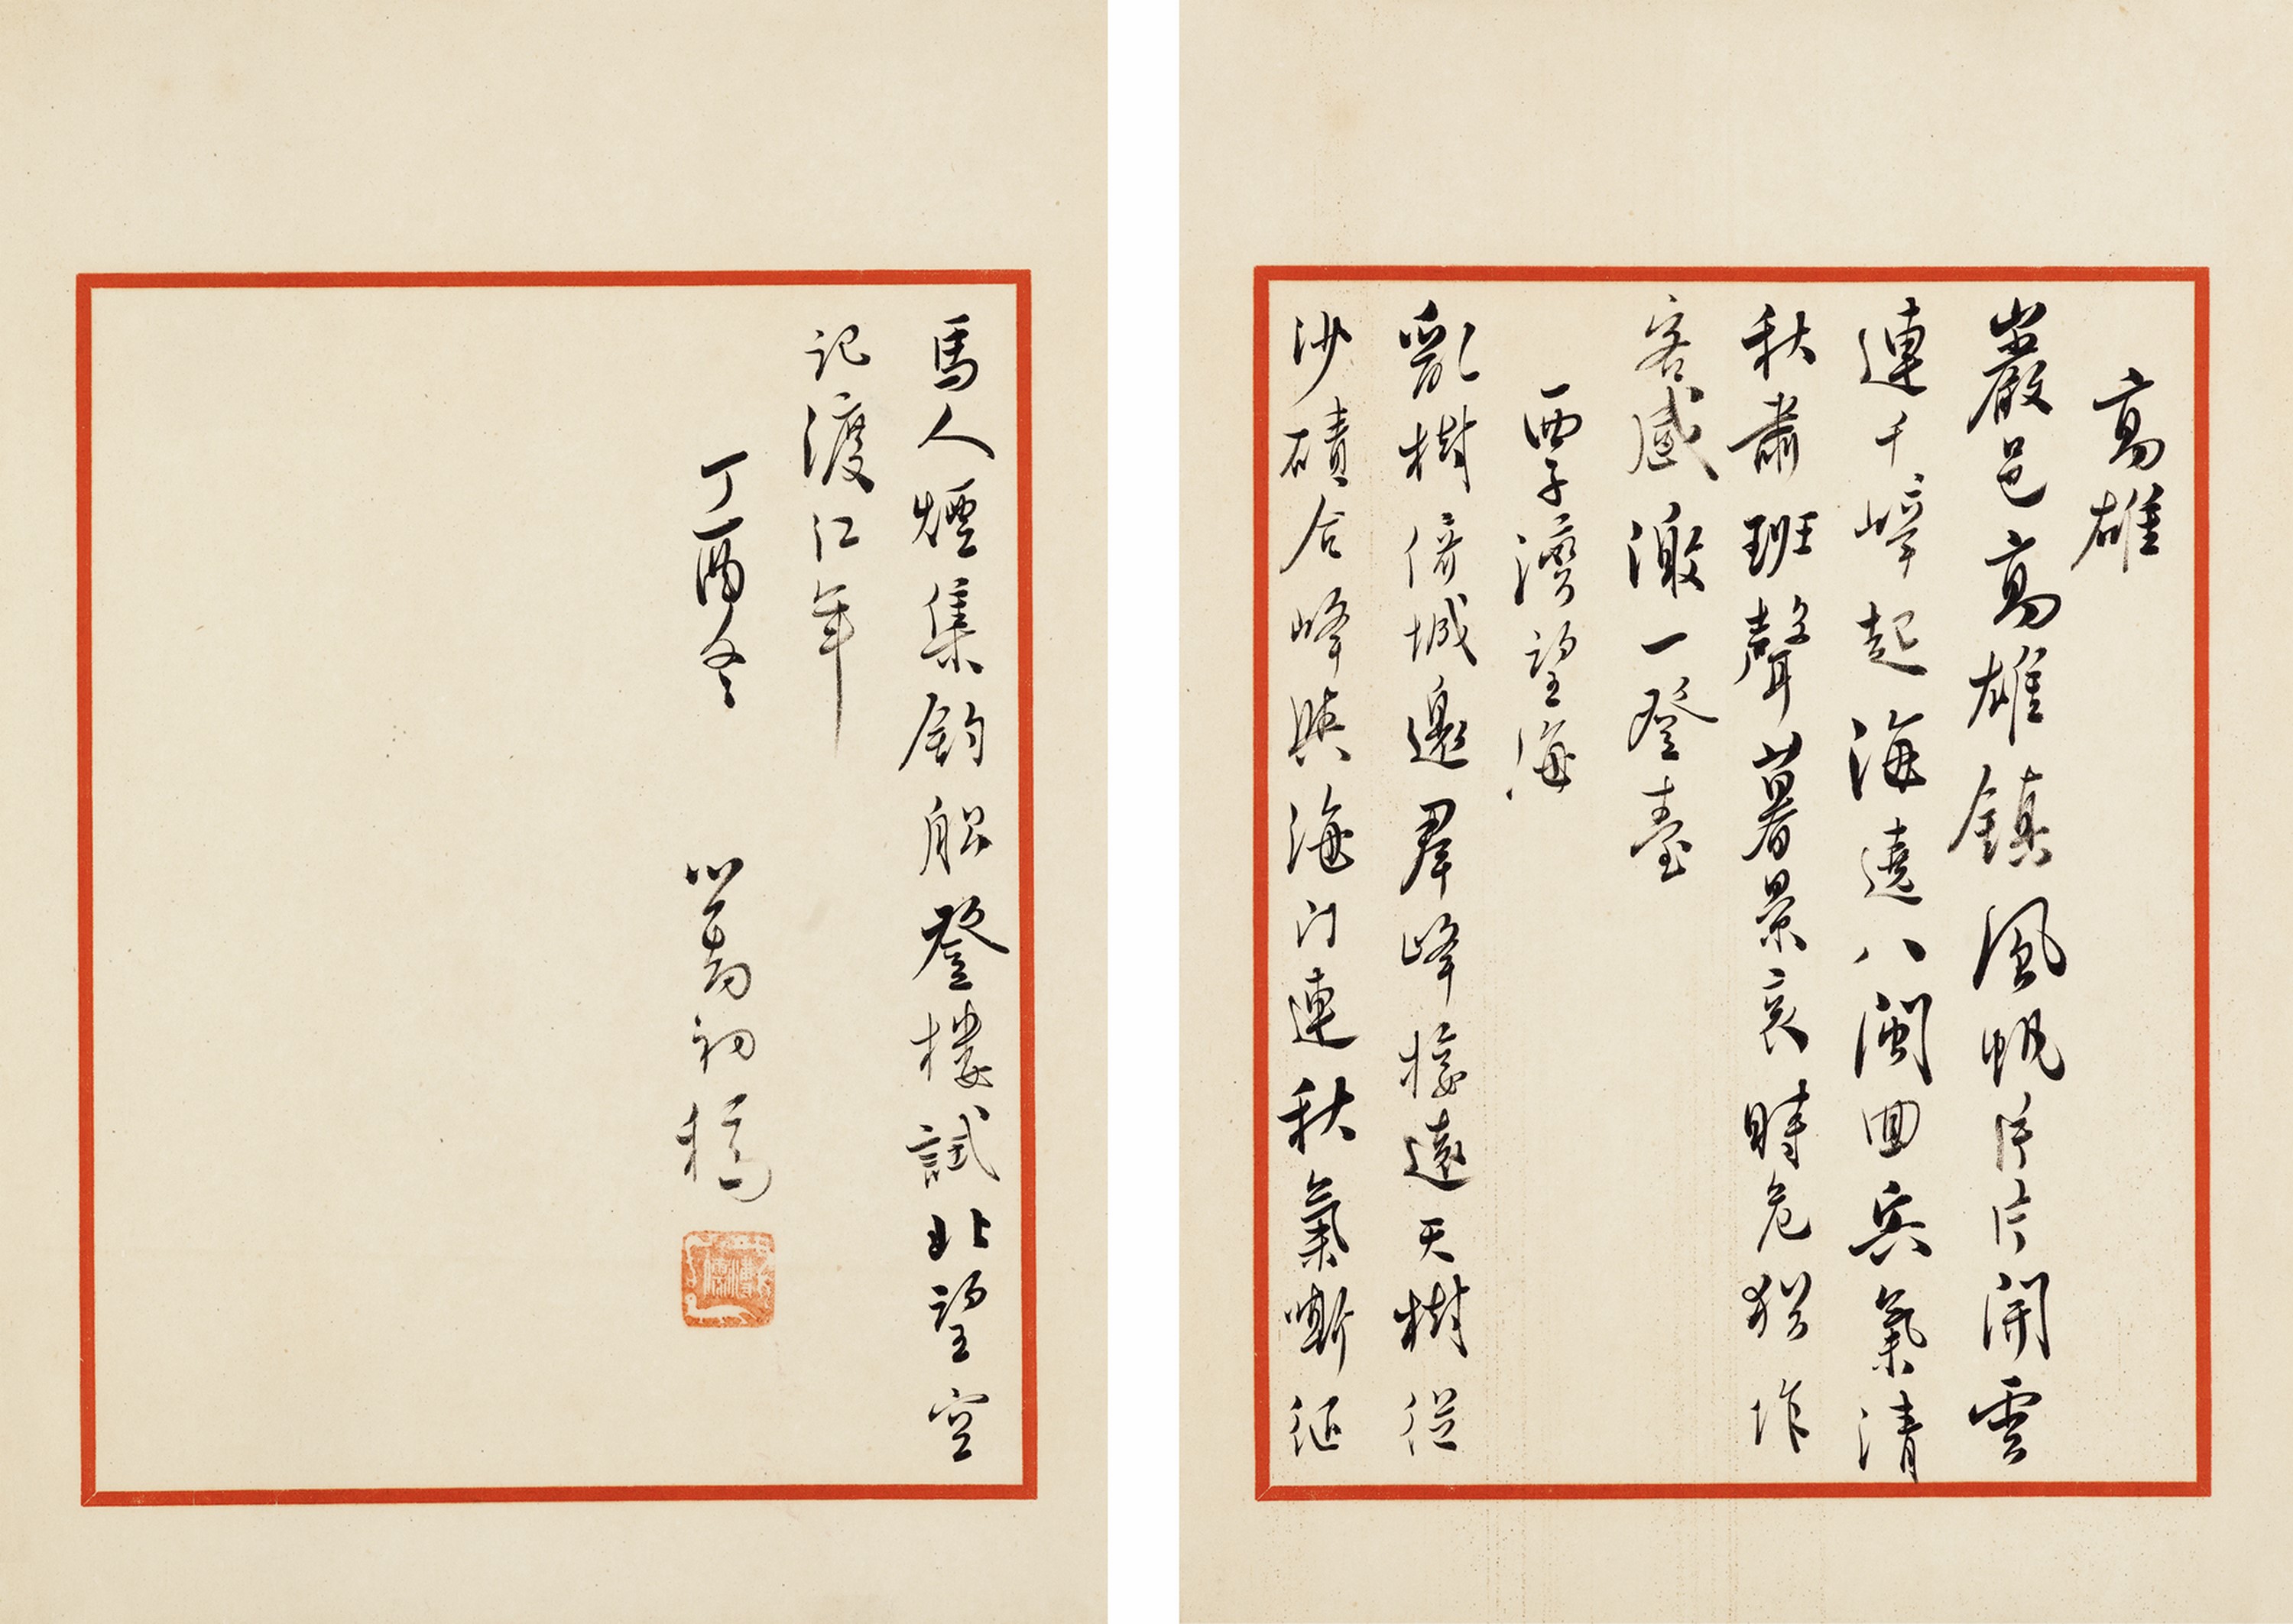 高雄
巖邑高雄鎮風帆片片開雲
連千嶂起海遶八閩回兵氣清
秋肅班聲暮景哀時危猶作
客感激一登臺
覃子灣望海
亂樹倚城邊羣峰接遠天樹從
沙磧合峰與海門連秋氣嘶征
馬人煙集釣船登樓試北望空
記渡江年
丁酉冬
心畬初稿
溥儒